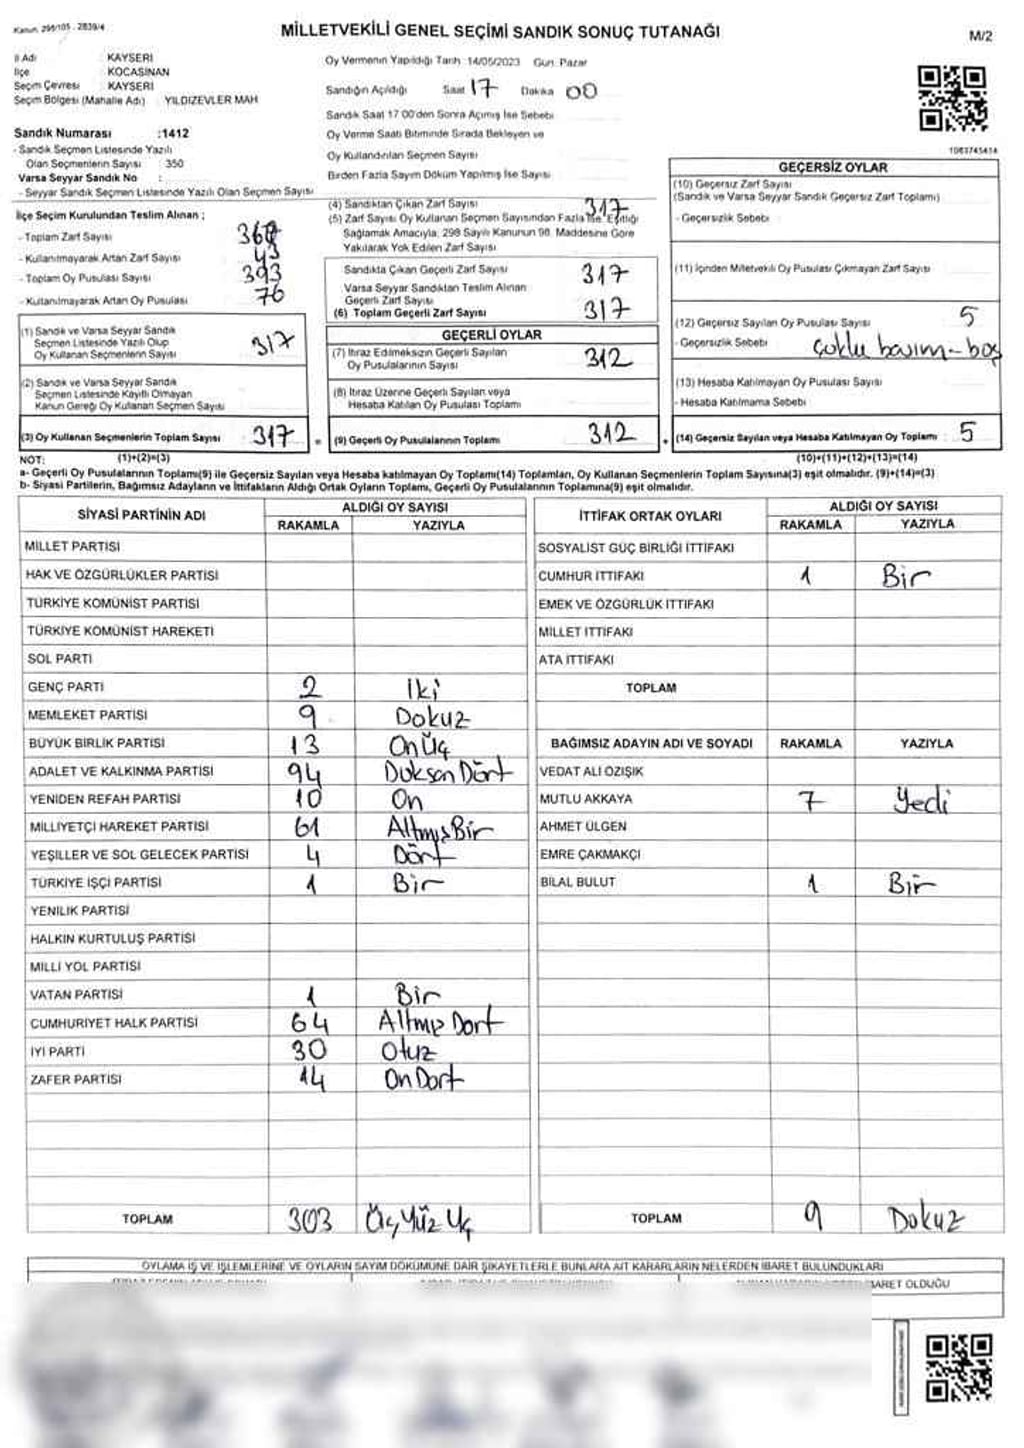 Kanun: 298/105 - 2839/4
MİLLETVEKİLİ GENEL SEÇİMİ SANDIK SONUÇ TUTANAĞI
M/2
İl Adı : KAYSERİ
İlçe : KOCASİNAN
Seçim Çevresi : KAYSERİ
Seçim Bölgesi (Mahalle Adı) : YILDIZEVLER MAH
Sandık Numarası :1412
- Sandık Seçmen Listesinde Yazılı
Olan Seçmenlerin Sayısı : 350
Varsa Seyyar Sandık No :
- Seyyar Sandık Seçmen Listesinde Yazılı Olan Seçmen Sayısı
Oy Vermenin Yapıldığı Tarih :14/05/2023 Gün: Pazar
Sandığın Açıldığı Saat 17 Dakika 00
Sandık Saat 17:00'den Sonra Açılmış İse Sebebi
Oy Verme Saati Bitiminde Sırada Bekleyen ve
Oy Kullandırılan Seçmen Sayısı
Birden Fazla Sayım Döküm Yapılmış İse Sayısı
1083745414
İlçe Seçim Kurulundan Teslim Alınan ;
- Toplam Zarf Sayısı
- Kullanılmayarak Artan Zarf Sayısı : 43
- Toplam Oy Pusulası Sayısı : 393
- Kullanılmayarak Artan Oy Pusulası : 76
(1) Sandık ve Varsa Seyyar Sandık
Seçmen Listesinde Yazılı Olup
Oy Kullanan Seçmenlerin Sayısı : 317
(2) Sandık ve Varsa Seyyar Sandık
Seçmen Listesinde Kayıtlı Olmayan
Kanun Gereği Oy Kullanan Seçmen Sayısı
(3) Oy Kullanan Seçmenlerin Toplam Sayısı : 317
(4) Sandıktan Çıkan Zarf Sayısı 317
(5) Zarf Sayısı Oy Kullanan Seçmen Sayısından Fazla İse, Eşitliği
Sağlamak Amacıyla, 298 Sayılı Kanunun 98. Maddesine Göre
Yakılarak Yok Edilen Zarf Sayısı
Sandıkta Çıkan Geçerli Zarf Sayısı 317
Varsa Seyyar Sandıktan Teslim Alınan
Geçerli Zarf Sayısı
(6) Toplam Geçerli Zarf Sayısı : 317
GEÇERLİ OYLAR
(7) İtiraz Edilmeksizin Geçerli Sayılan
Oy Pusulalarının Sayısı : 312
(8) İtiraz Üzerine Geçerli Sayılan veya
Hesaba Katılan Oy Pusulası Toplamı
= (9) Geçerli Oy Pusulalarının Toplamı : 312
GEÇERSİZ OYLAR
(10) Geçersiz Zarf Sayısı
(Sandık ve Varsa Seyyar Sandık Geçersiz Zarf Toplamı)
- Geçersizlik Sebebi :
(11) İçinden Milletvekili Oy Pusulası Çıkmayan Zarf Sayısı
(12) Geçersiz Sayılan Oy Pusulası Sayısı : 5
- Geçersizlik Sebebi : çoklu basım-boş
(13) Hesaba Katılmayan Oy Pusulası Sayısı
- Hesaba Katılmama Sebebi :
+ (14) Geçersiz Sayılan veya Hesaba Katılmayan Oy Toplamı : 5
NOT: (1)+(2)=(3) (10)+(11)+(12)+(13)=(14)
a- Geçerli Oy Pusulalarının Toplamı(9) ile Geçersiz Sayılan veya Hesaba katılmayan Oy Toplamı(14) Toplamları, Oy Kullanan Seçmenlerin Toplam Sayısına(3) eşit olmalıdır. (9)+(14)=(3)
b- Siyasi Partilerin, Bağımsız Adayların ve İttifakların Aldığı Ortak Oyların Toplamı, Geçerli Oy Pusulalarının Toplamına(9) eşit olmalıdır.
SİYASİ PARTİNİN ADI ALDIĞI OY SAYISI
RAKAMLA YAZIYLA
MİLLET PARTİSİ
HAK VE ÖZGÜRLÜKLER PARTİSİ
TÜRKİYE KOMÜNİST PARTİSİ
TÜRKİYE KOMÜNİST HAREKETİ
SOL PARTİ
GENÇ PARTİ 2 İki
MEMLEKET PARTİSİ 9 Dokuz
BÜYÜK BİRLİK PARTİSİ 13 OnÜç
ADALET VE KALKINMA PARTİSİ 94 Doksan Dört
YENİDEN REFAH PARTİSİ 10 On
MİLLİYETÇİ HAREKET PARTİSİ 61 Altmış Bir
YEŞİLLER VE SOL GELECEK PARTİSİ 4 Dört
TÜRKİYE İŞÇİ PARTİSİ 1 Bir
YENİLİK PARTİSİ
HALKIN KURTULUŞ PARTİSİ
MİLLİ YOL PARTİSİ
VATAN PARTİSİ 1 Bir
CUMHURİYET HALK PARTİSİ 64 Altmış Dört
İYİ PARTİ 30 Otuz
ZAFER PARTİSİ 14 On Dört
TOPLAM 303 Üç Yüz Üç
İTTİFAK ORTAK OYLARI ALDIĞI OY SAYISI
RAKAMLA YAZIYLA
SOSYALİST GÜÇ BİRLİĞİ İTTİFAKI
CUMHUR İTTİFAKI 1 Bir
EMEK VE ÖZGÜRLÜK İTTİFAKI
MİLLET İTTİFAKI
ATA İTTİFAKI
TOPLAM
BAĞIMSIZ ADAYIN ADI VE SOYADI RAKAMLA YAZIYLA
VEDAT ALİ ÖZIŞIK
MUTLU AKKAYA 7 Yedi
AHMET ÜLGEN
EMRE ÇAKMAKÇI
BİLAL BULUT 1 Bir
TOPLAM 9 Dokuz
OYLAMA İŞ VE İŞLEMLERİNE VE OYLARIN SAYIM DÖKÜMÜNE DAİR ŞİKAYETLERLE BUNLARA AİT KARARLARIN NELERDEN İBARET BULUNDUKLARI
İBARET OLDUĞU